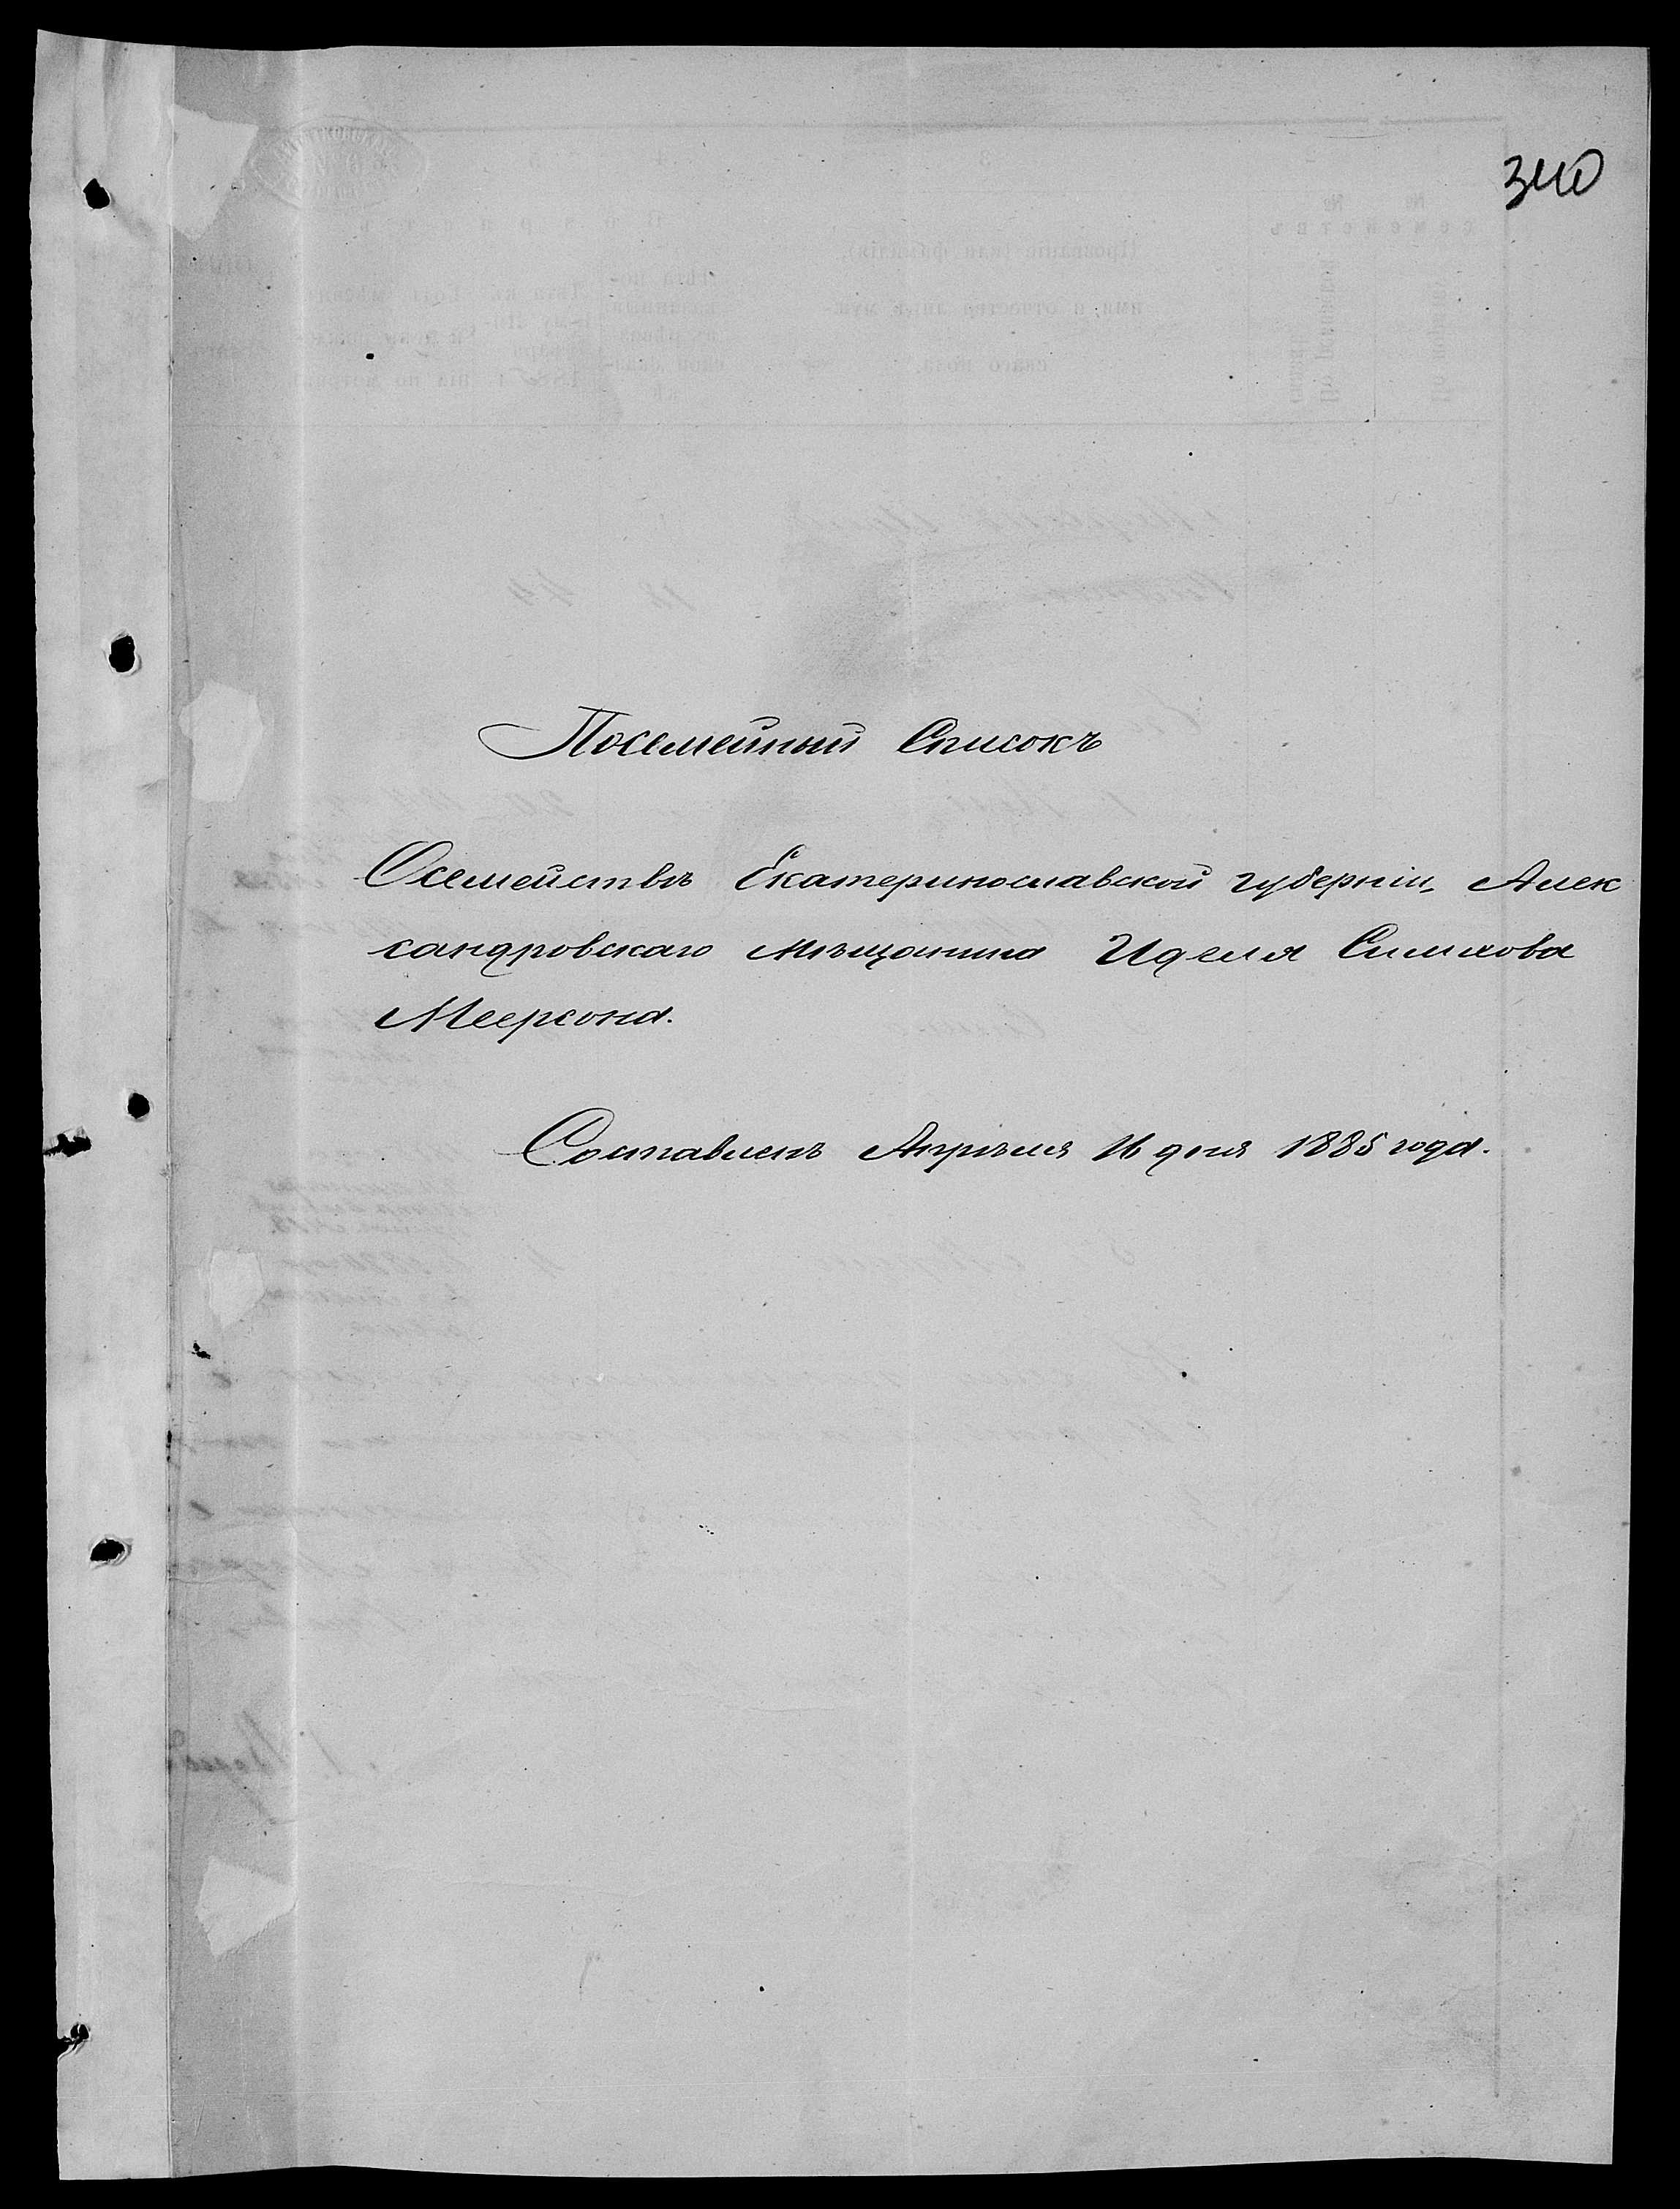 340
Посемейный Списокъ
О семействѣ Екатеринославской губерніи, Алек
сандровскаго мѣщанина Иделя Симхова
Меерсона.
Составленъ Апрѣля 16 дня 1885 года.